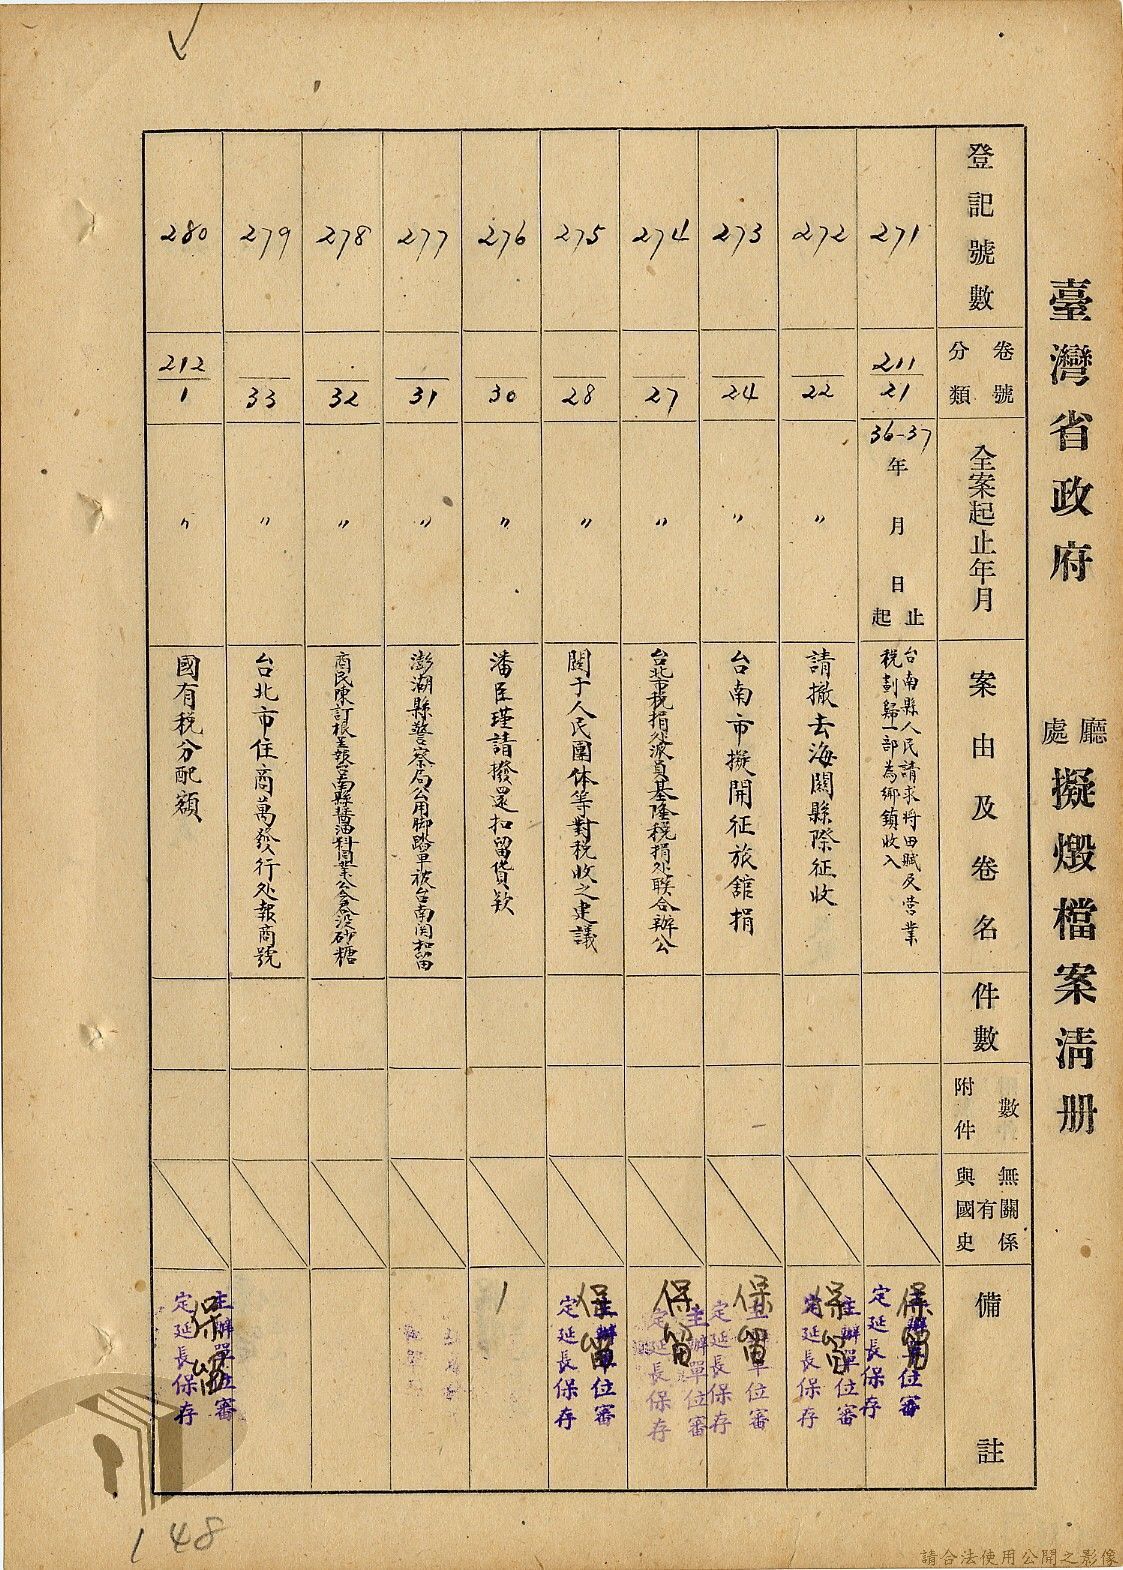 臺灣省政府 廳處 擬燬檔案清册
登記號數
分類 卷號
全案起止年月
案由及卷名
件數
附件 數
與國史 有無關係
備註
271
211/21
36-37
年 月 日 起 止
台南縣人民請求将田賦及营業
税划歸一部為鄉鎮收入
保留
主辦單位審
定延長保存
272
22
〃
請撤去海關縣際征收
保留
主辦單位審
定延長保存
273
24
〃
台南市擬開征旅舘捐
保留
主辦單位審
定延長保存
274
27
〃
台北市税捐处派員基隆税捐处联合辦公
保留
主辦單位審
定延長保存
275
28
〃
関于人民團体等對税收之建議
保留
主辦單位審
定延長保存
276
30
〃
潘臣瑾請撥還扣留貨欵
277
31
〃
澎湖縣警察局公用脚踏車被台南関扣留
278
32
〃
商民陳訂根呈報台南縣醬油料同業公会吞没砂糖
279
33
〃
台北市住商萬發行处報商號
280
212/1
〃
國有税分配額
保留
主辦單位審
定延長保存
148
請合法使用公開之影像